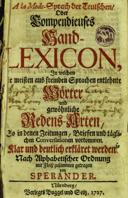 A la Mode-Sprach der Teutschen/
Oder
Compendieuses
Hand-
LEXICON,
In welchem
die meisten aus fremden Sprachen entlehnte
Wörter
und
gewöhnliche
Redens-Arten,
So in denen Zeitungen, Briefen und tägli-
chen Conversationen vorkommen
Klar und deutlich erkläret werden
Nach Alphabetischer Ordnung
mit Fleiß zusammen getragen
von
SPERANDER.
Nürnberg,
Verlegts Buggel und Seitz, 1727.